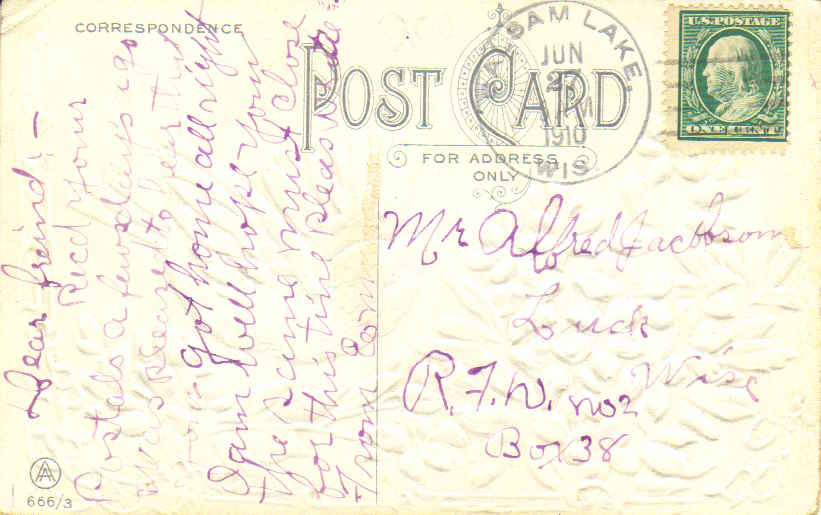 CORRESPONDENCE
POST CARD
FOR ADDRESS
ONLY
BALSAM LAKE,
JUN
1910
WIS.
U.S. POSTAGE
ONE CENT
Dear freind:—
Recd your
Postals a few days ago
was pleased to hear that
you got home all right
I am well hope you
the same must close
for this time pleas write
From
Mr Alfred Jacobson
Luck
Wisc
R.F.D. no 2
Box 38
AA
666/3